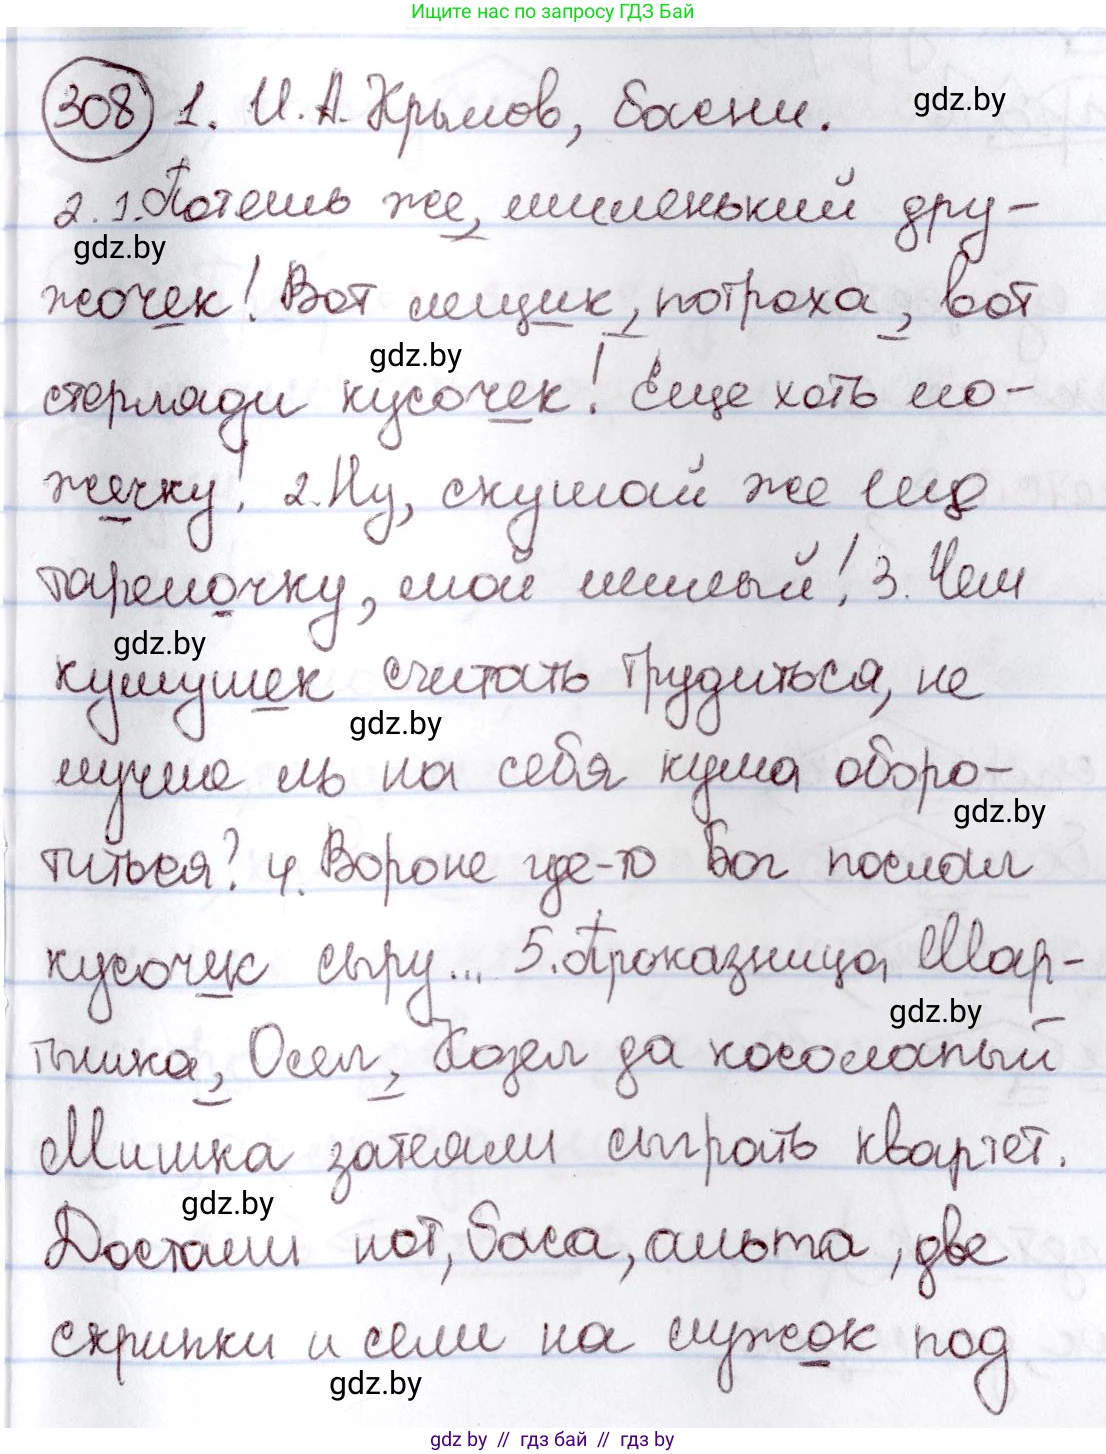 Ищите нас по запросу ГДЗ Бай
308 1. И. А. Крылов, басни.
gdz.by
2. 1. Потешь же, миленький дру-
gdz.by
жочек! Вот лещик, потроха, вот
gdz.by
стерляди кусочек! Еще хоть ло-
жечку! 2. Ну, скушай же еще
тарелочку, мой милый! 3. Чем
gdz.by
кумушек считать трудиться, не
gdz.by
лучше ль на себя кума оборо-
gdz.by
титься? 4. Вороне где-то Бог послал
кусочек сыру... 5. Проказница Мар-
gdz.by
тышка, Осел, Козел да косолапый
Мишка затеяли сыграть квартет.
gdz.by
Достали нот, баса, альта, две
скрипки и сели на лужок под
gdz.by
gdz.by // гдз бай // гдз by